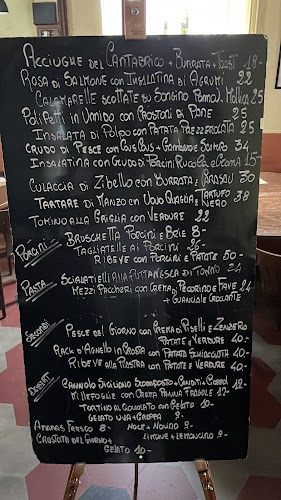 Acciughe del Cantabrico + Burrata + Toast 18-
Rosa di Salmone con Insalatina di Agrumi 22
Calamarelle scottate su Songino Pomod. Mollica 25
Polipetti in Umido con Crostoni di Pane 25
Insalata di Polpo con Patata Prezzemolata 25
Crudo di Pesce con Cous Cous + Gambero Scampo 34
Insalatina con Crudo di Porcini Rucola e Grana 15-
Culaccia di Zibello con Burrata + 30
Tartare di Manzo con Uovo Quaglia + Tartufo Nero 38
Tomino alla Griglia con Verdure 22
Porcini:
Bruschetta Porcini e Brie 8-
Tagliatelle ai Porcini 26-
Ribeye con Porcini e Patate 50-
Pasta:
Scialatielli alla Puttanesca di Tonno 24
Mezzi Paccheri con Crema di Pecorino e Fave 24
+ Guanciale Croccante
Secondi
Pesce del Giorno con Crema di Piselli e Zenzero
Patate e Verdure 40-
Rack d'Agnello in Crosta con Patata Schiacciata 40-
Ribeye alla Piastra con Patate e Verdure 40-
Dessert
Cannolo Siciliano Scomposto + Canditi + Cioccol 12
Millefoglie con Crema Panna Fragole 12-
Tortino al Cioccolato con Gelato 12-
Gelato Uva + Grappa 9-
Ananas Fresco 8- Noce + Nocino 9-
Crostata del Giorno + Limone + Lemoncino 9-
Gelato 10-